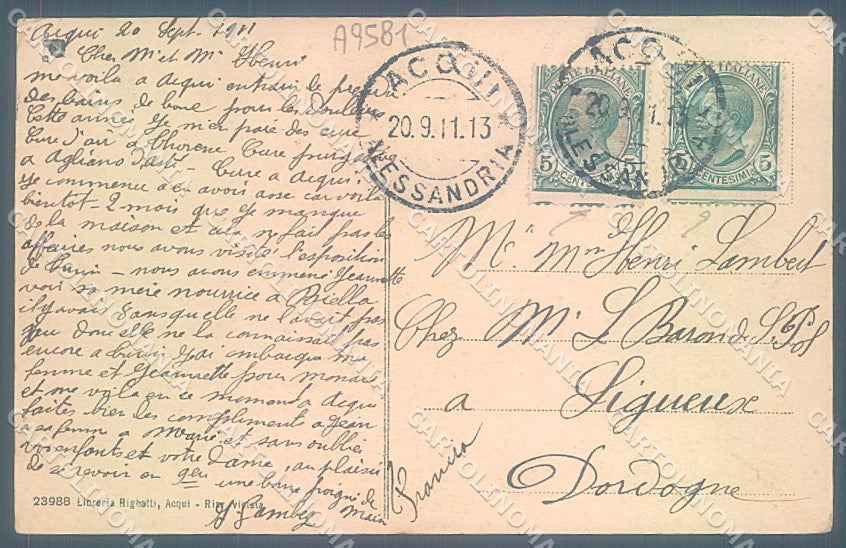 Acqui 20 Sept. 1911
Cher Mr et Mme Henri
me voila a Acqui entrain le prendre
des bains de boue pour les douleurs
Cette année je m'en paie des cures
Cure d'air a Cure
a Agliano d'asti Cure a Acqui
je commence a en avoir car voila
bientot 2 mois que je manque
de la maison et cela ne fait pas les
affaires nous avons visité l'exposition
de Turin - nous avons emmené Jeannette
voir sa mere nourrice a Biella
il y avait ans qu'elle ne l'avait pas
vu donc elle ne la connaissait pas
encore a Turin J'ai embarqué ma
femme et Jeannette pour Monaco
et me voila en ce moment a Acqui
faites bien les compliments a Jean
a sa femme a Marie et sans oublier
vos enfants et votre Dame, au plaisir
de se revoir en une bonne poignée de
main
23988 Libreria Righatti, Acqui - Rip. vietata
A9581
ACQUI
20.9.11.13
ALESSANDRIA
ACQUI
20.9.11.13
ALESSANDRIA
POSTE ITALIANE
5 CENTESIMI 5
POSTE ITALIANE
5 CENTESIMI 5
Mr Mme Henri Lambert
Chez Mr L Baron du St Pol
a Ligueux
Dordogne
Francia
CARTOLINOMANIA